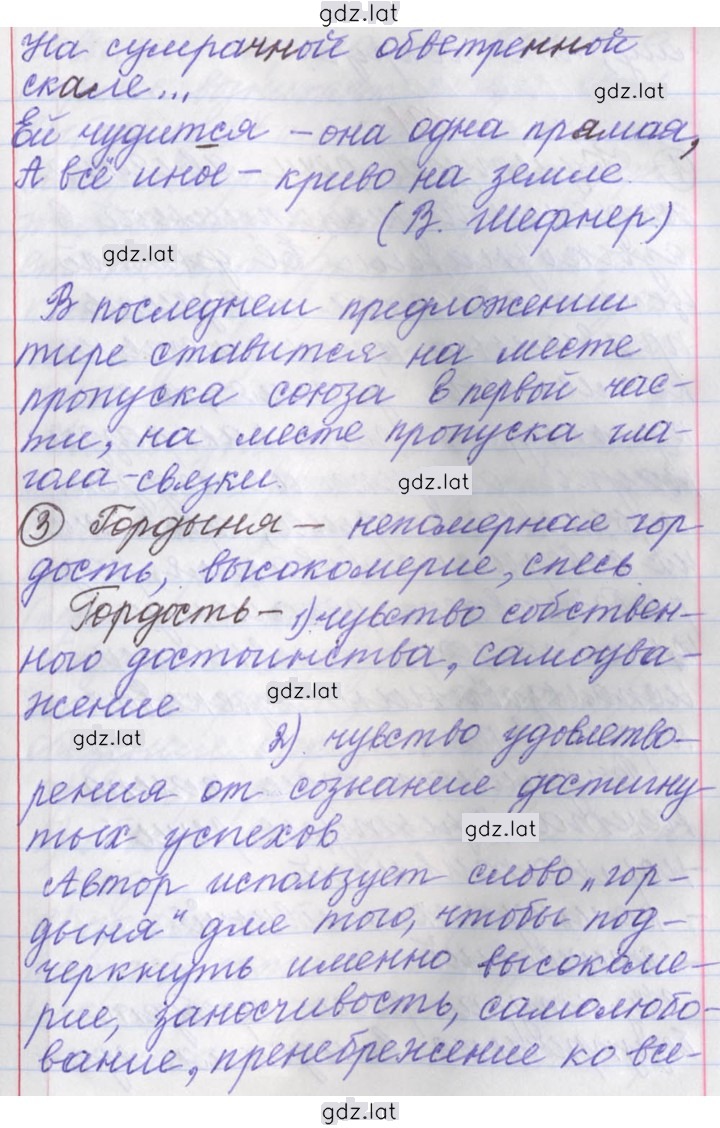 gdz.lat
На сумрачной обветренной
скале...
gdz.lat
Ей чудится – она одна прямая,
А всё иное – криво на земле.
(В. Шефнер)
gdz.lat
В последнем предложении
тире ставится на месте
пропуска союза в первой час-
ти, на месте пропуска гла-
гола-связки.
gdz.lat
3 Гордыня – непомерная гор-
дость, высокомерие, спесь
Гордость – 1) чувство собствен-
ного достоинства, самоува-
жение
gdz.lat
gdz.lat
2) чувство удовлетво-
рения от сознание достигну
тых успехов
gdz.lat
Автор использует слово „гор-
дыня“ для того, чтобы под-
черкнуть именно высокоме-
рие, заносчивость, самолюбо-
вание, пренебрежение ко все-
gdz.lat